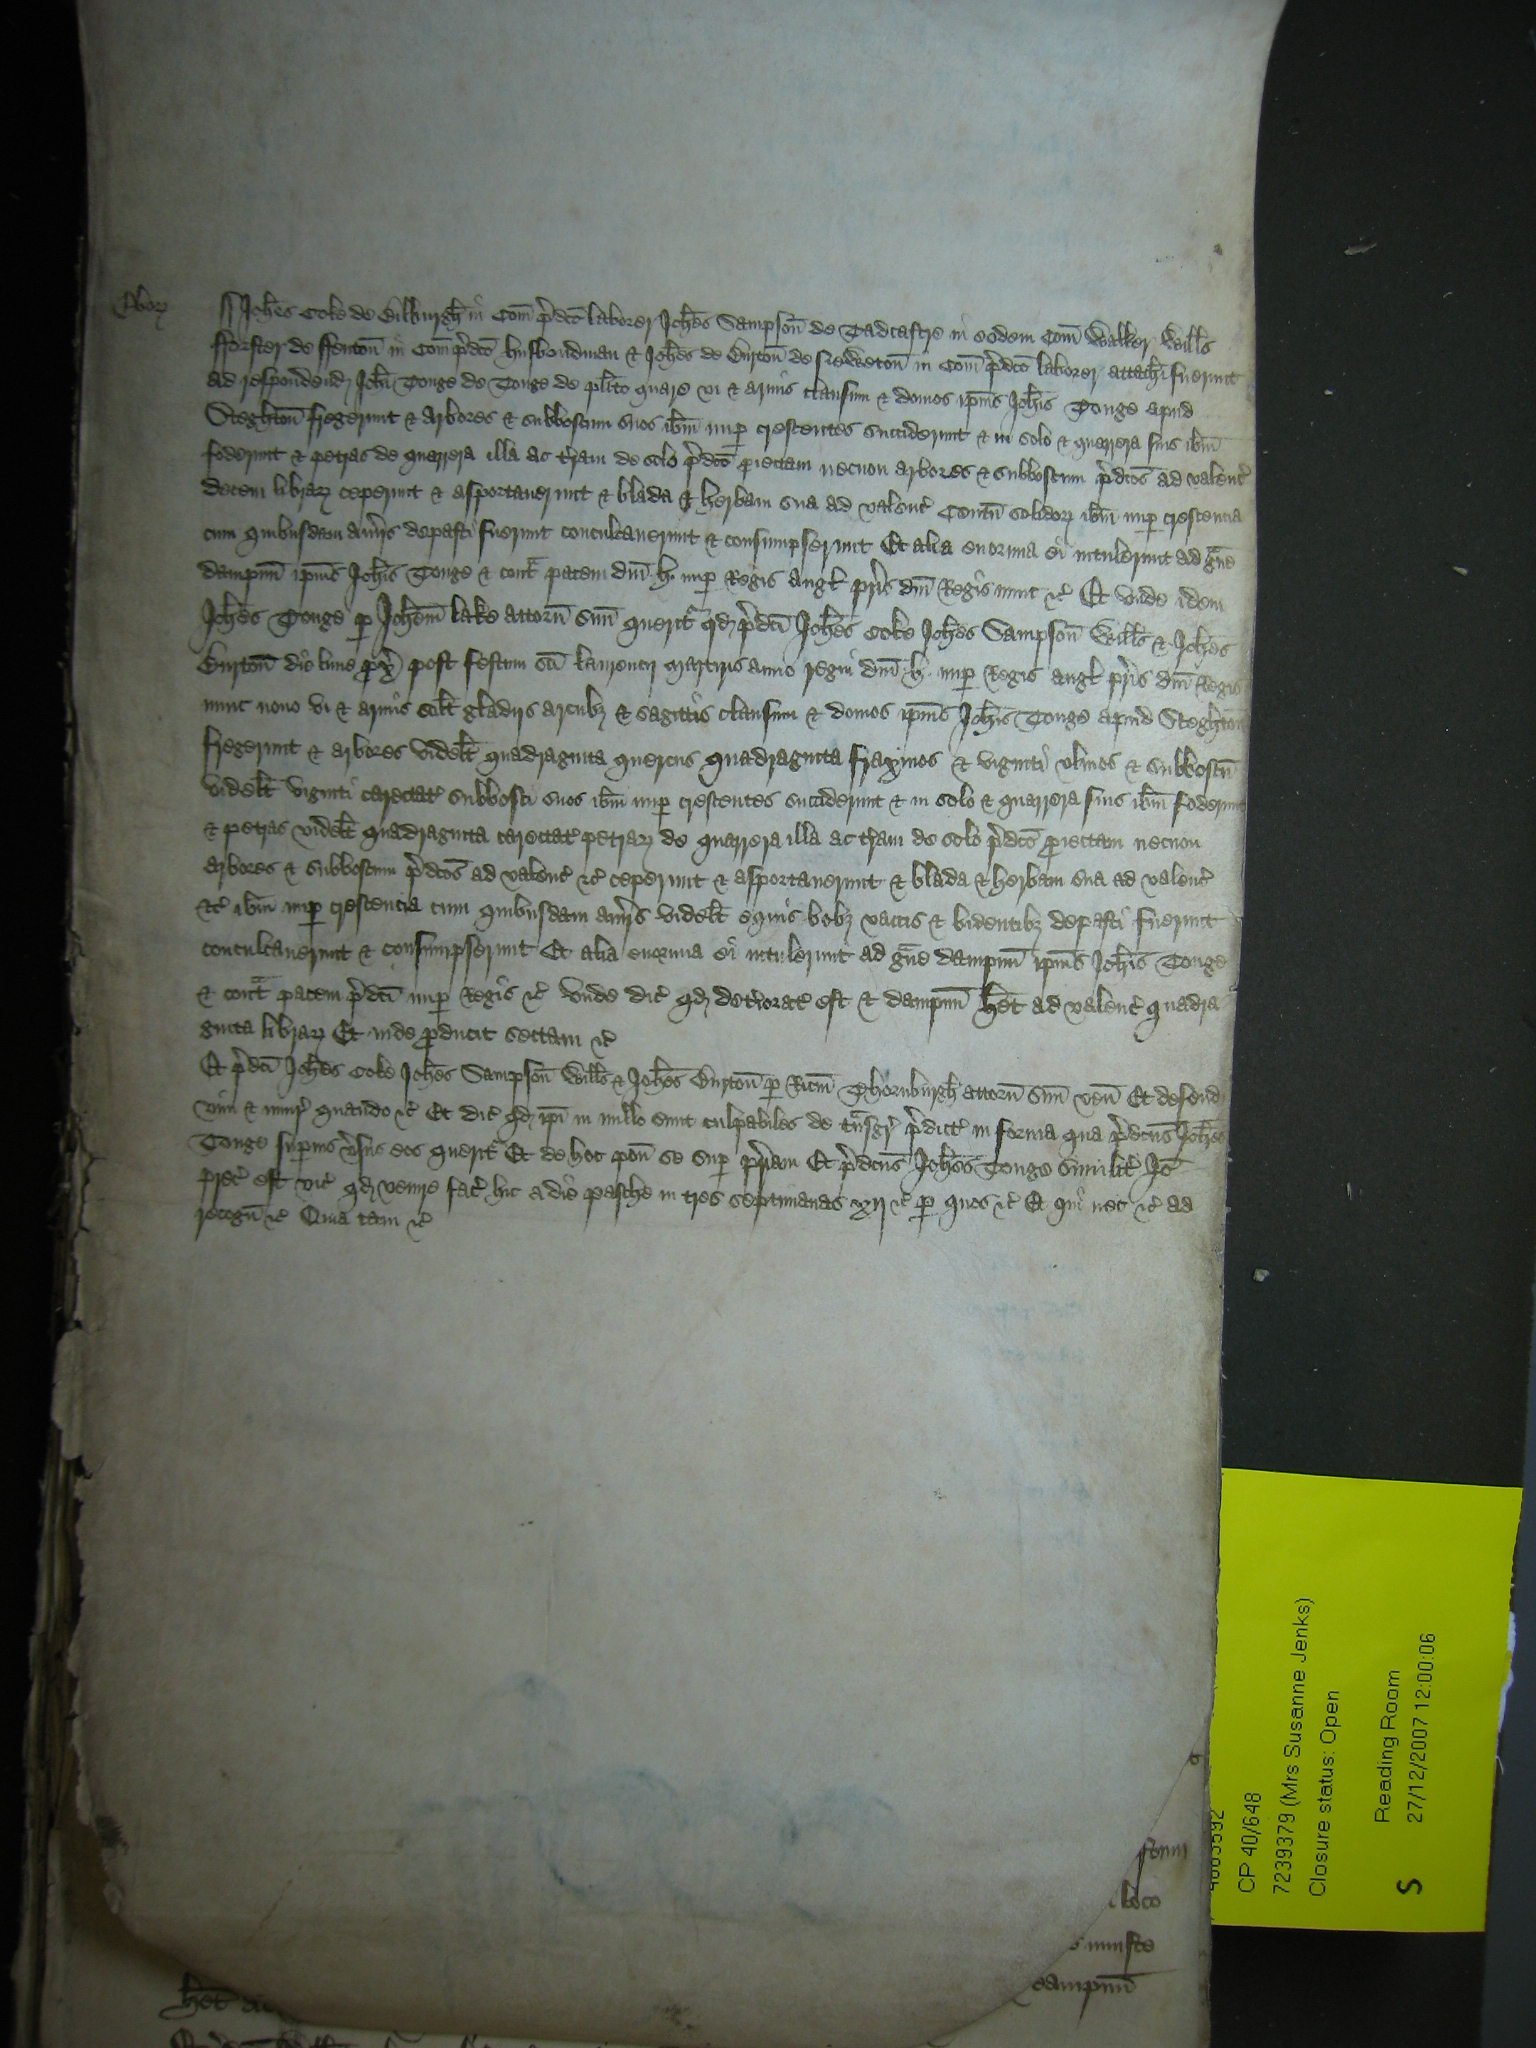 Ebor̄
ss Joh̄es Coke de Bilburgh in Com̄ p̄dc̄o laborer Joh̄es Sampson̄ de Tadcastre in eodem Com̄ Walker Will̄s
fforster de ffenton̄ in Com̄ p̄dc̄o husbondman & Joh̄es de Burton̄ de Neweton̄ in Com̄ p̄dc̄o laborer attach̄i fuerunt
ad respondend Joh̄i Tonge de Tonge de pl̄ito quare vi & armis clausum & domos ip̄ius Joh̄is Tonge apud
Steghton̄ fregerunt & arbores & subboscum suos ib̄m nup̄ crescentes succiderunt & in solo & quarrera suis ib̄m
foderunt & petras de quarrera illa ac t̄ram de solo p̄dc̄o p̄iectam necnon arbores & subboscum p̄dc̄os ad valenc̄
decem librar̄ ceperunt & asportauerunt & blada & herbam sua ad valenc̄ Centū solidor̄ ib̄m nup̄ crescencia
cum quibusdam aūijs depasti fuerunt conculcauerunt & consumpserunt Et alia enormia ei intulerunt ad ḡue
dampnū ip̄ius Joh̄is Tonge & cont̄ pacem dn̄i .h. nup̄ Regis Angl̄ pr̄is dn̄i Regis nunc &c̄ Et vnde idem
Joh̄es Tonge p̄ Joh̄em lake attorn̄ suū querit̄ qd̄ p̄dc̄i Joh̄es Coke Joh̄es Sampson̄ Will̄s & Joh̄es
Burton̄ die lune p̄x̄ post festum sc̄i laurencij martiris anno regni dn̄i .h. nup̄ Regis Angl̄ pr̄is dn̄i Regis
nunc nono vi & armis scil̄t gladijs arcubȝ & sagittis clausum & domos ip̄ius Joh̄is Tonge apud Steghton̄
fregerunt & arbores videl̄t quadraginta quercus quadraginta fraxinos & viginti vlmos & subboscū
videl̄t viginti carectat̄ subbosci suos ib̄m nup̄ crescentes succiderunt & in solo & quarrera suis ib̄m foderunt
& petras videl̄t quadraginta carectat̄ petrar̄ de quarrera illa ac t̄ram de solo p̄dc̄o p̄iectam necnon
arbores & subboscum p̄dc̄os ad valenc̄ &c̄ ceperunt & asportauerunt & blada & herbam sua ad valenc̄
&c̄ ib̄m nup̄ crescencia cum quibusdam aūijs videl̄t equis bobȝ vaccis & bidentibȝ depasti fuerunt
conculcauerunt & consumpserunt Et alia enormia ei intulerunt ad ḡue dampnū ip̄ius Joh̄is Tonge
& cont̄ pacem p̄dc̄i nup̄ Regis &c̄ vnde dic̄ qd̄ det̄iorat̄ est & dampnū h̄et ad valenc̄ quadra
ginta librar̄ Et inde p̄ducit sectam &c̄
Et p̄dc̄i Joh̄es Coke Joh̄es Sampson̄ Will̄s & Joh̄es Burton̄ p̄ Ric̄m Thornburgh attorn̄ suū ven̄ Et defend
vim & iniur̄ quando &c̄ Et dic̄ qd̄ ip̄i in nullo sunt culpabiles de tn̄sgr̄ p̄dict̄ in forma qua p̄dc̄us Joh̄es
Tonge sup̄ius v̄sus eos querit̄ Et de hoc pon̄ se sup̄ pr̄iam Et p̄dc̄us Joh̄es Tonge similit̄ Jō
prec̄ est vic̄ qd̄ venire fac̄ hic a die pasche in tres septimanas xij &c̄ p̄ quos &c̄ Et qui nec &c̄ ad
recogn̄ &c̄ Quia tam &c̄
loco
dampnū
h̄et
CP 40/648
7239379 (Mrs Susanne Jenks)
Closure status: Open
Reading Room
S 27/12/2007 12:00:06